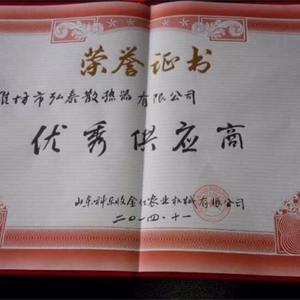 荣誉证书
潍坊市弘泰散热器有限公司
优秀供应商
山东科乐收金亿农业机械有限公司
二〇一四.十一